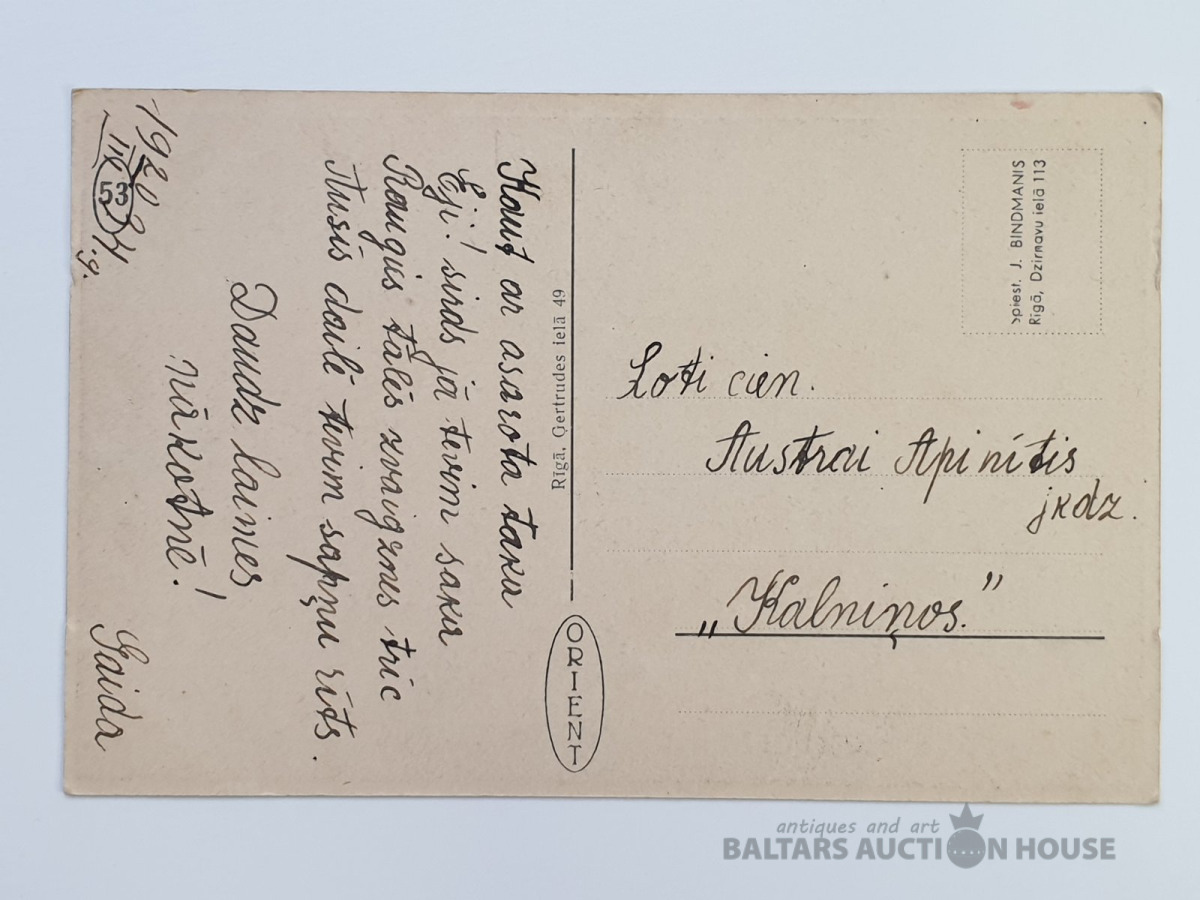 Kaut ar asarota taka
Ej! sirds jā tevim saka
Raugis tālēs zvaigznes tric
Ausīs dailē tevim sapņu rīts.
Daudz laimes
nākotnē!
Gaida
53
g.
Rīgā, Ģertrudes ielā 49
ORIENT
spiest. J. BINDMANIS
Rīgā, Dzirnavu ielā 113
Loti cien.
Austrai Apinītis
jkdz.
„Kalniņos.”
antiques and art
BALTARS AUCTION HOUSE